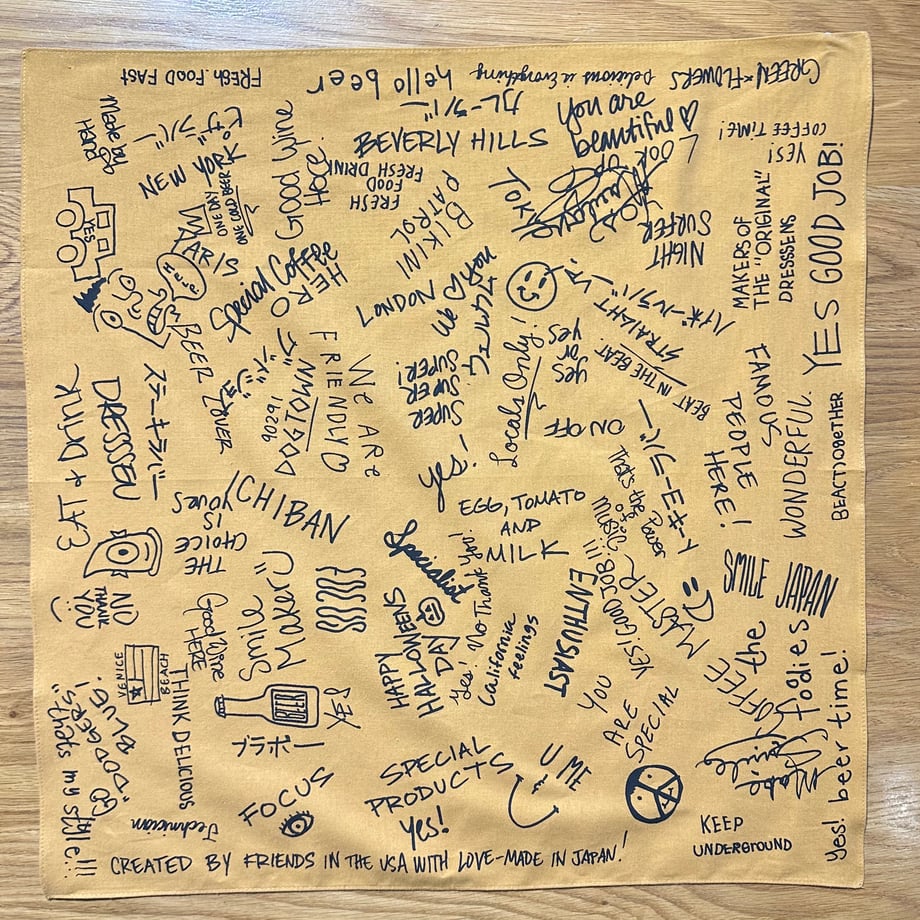 FRESH FOOD FAST
hello beer
Delicious is Everything
GREEN×FLOWERS
Make my
Hand
ビーサラバー
Good Wine
Here
カレーラバー
BEVERLY HILLS
You are
beautiful
Look up
COFFEE TIME!
YES!
YES GOOD JOB!
NEW YORK
ONE DAY
ONE OLD BEER
FRESH
FOOD
FRESH DRINK
BIKINI
PATROL
TOKIO
NIGHT
SURFER
MAKERS OF
THE "ORIGINAL"
DRESSSENS
YES
PARIS
Special Coffee
HERO
LONDON
We
You
ハイボールラバー
STRAIGHT
BEAT IN THE BEAT
BEER
LOVER
90291
DOGTOWN
WE ARE
FRIENDLY
SUPER
SUPER
SUPER!
Locals Only!
yes
or
yes
ON OFF
FAMOUS
PEOPLE
HERE!
WONDERFUL
BEACTOGETHER
EAT & DRINK
DRESSEN
ステーキラバー
yes!
THE
CHOICE
IS
YOURS
ICHIBAN
EGG, TOMATO
AND
MILK
That's the Power
of
music!!!
NO
THANK
YOU
Good Wine
HERE
Smile
Maker
Specialist
HAPPY
HALLOWEENS
DAY
Yes! No Thank you!
California
feelings
ENTHUSIAST
YES! GOOD JOB!
COFFEE MASTER
SMILE JAPAN
VENICE
BEACH
THINK DELICIOUS
BEER
ブラボー
YOU
ARE
SPECIAL
the
foodies
Make
Smile
yes! beer time!
"DODGERS
BLUE"
"thats my style!!!
Technician
FOCUS
SPECIAL
PRODUCTS
Yes!
U ME
KEEP
UNDERGROUND
CREATED BY FRIENDS IN THE USA WITH LOVE-MADE IN JAPAN!